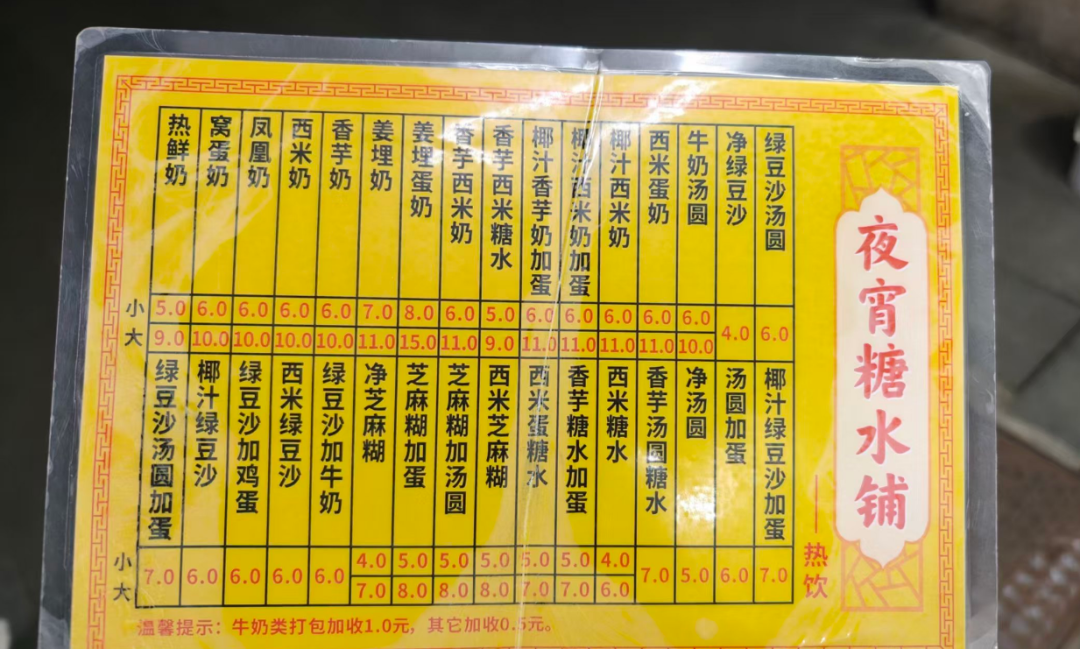 夜宵糖水铺
——热饮
绿豆沙汤圆 6.0
净绿豆沙 4.0
牛奶汤圆 6.0 10.0
西米蛋奶 6.0 11.0
椰汁西米奶 6.0 11.0
椰汁西米奶加蛋 6.0 11.0
椰汁香芋奶加蛋 6.0 11.0
香芋西米糖水 5.0 9.0
香芋西米奶 6.0 11.0
姜埋蛋奶 8.0 15.0
姜埋奶 7.0 11.0
香芋奶 6.0 10.0
西米奶 6.0 10.0
凤凰奶 6.0 10.0
窝蛋奶 6.0 10.0
热鲜奶 5.0 9.0
小
大
椰汁绿豆沙加蛋 7.0
汤圆加蛋 6.0
净汤圆 5.0
香芋汤圆糖水 7.0
西米糖水 4.0 6.0
香芋糖水加蛋 5.0 7.0
西米蛋糖水 5.0 7.0
西米芝麻糊 5.0 8.0
芝麻糊加汤圆 5.0 8.0
芝麻糊加蛋 5.0 8.0
净芝麻糊 4.0 7.0
绿豆沙加牛奶 6.0
西米绿豆沙 6.0
绿豆沙加鸡蛋 6.0
椰汁绿豆沙 6.0
绿豆沙汤圆加蛋 7.0
小
大
温馨提示：牛奶类打包加收1.0元，其它加收0.5元。